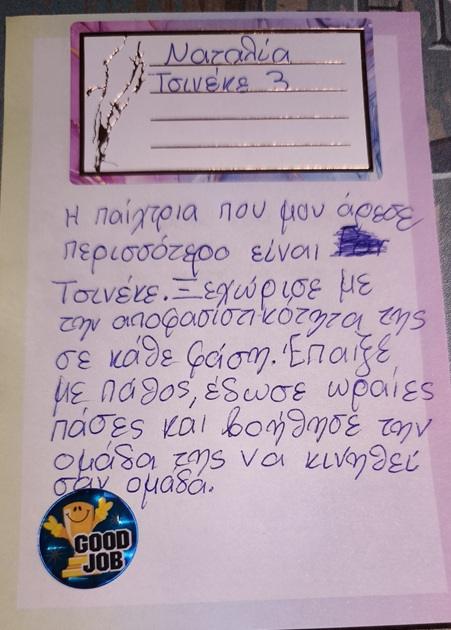 Ναταλία
Τσινέκε 3
Η παίχτρια που μου άρεσε
περισσότερο είναι
Τσινέκε. Ξεχώρισε με
την αποφασιστικότητα της
σε κάθε φάση. Έπαιξε
με πάθος, έδωσε ωραίες
πάσες και βοήθησε την
ομάδα της να κινηθεί
σαν ομάδα.
GOOD
JOB